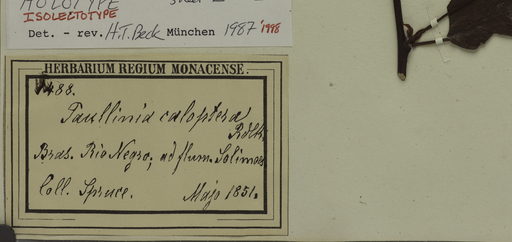 HOLOTYPE
ISOLECTOTYPE
Det. - rev. H.T. Beck München 1987 '1998
HERBARIUM REGIUM MONACENSE.
1488.
Paullinia caloptera
Rdlk.
Bras. Rio Negro; ad flum. Solimoes
Coll. Spruce. Majo 1851.